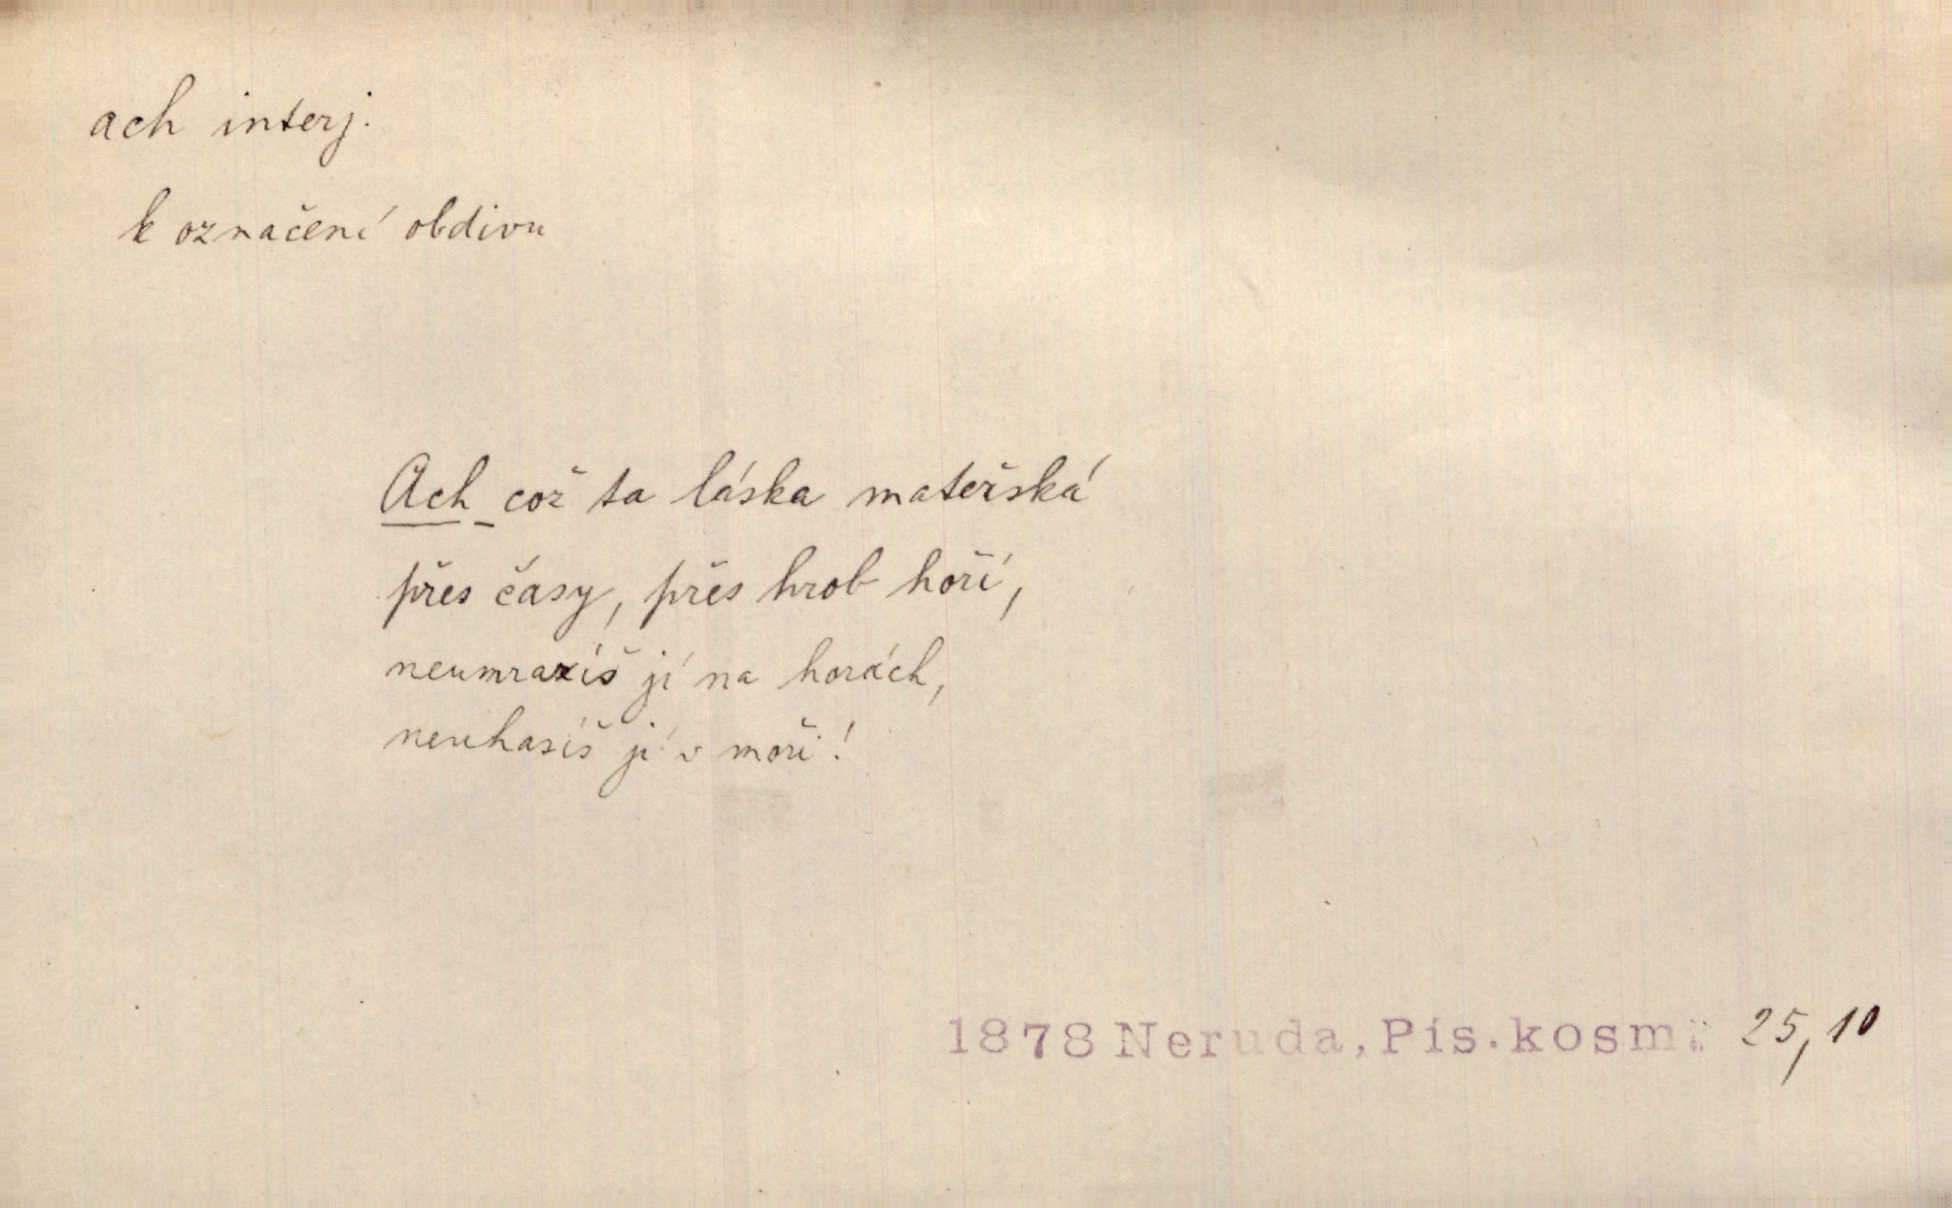 ach interj.
k označení obdivu
Ach což ta láska mateřská
přes časy, přes hrob hoří,
neumrazíš jí na horách,
neuhasíš jí v moři!
1878 Neruda, Pís. kosm. 25,10